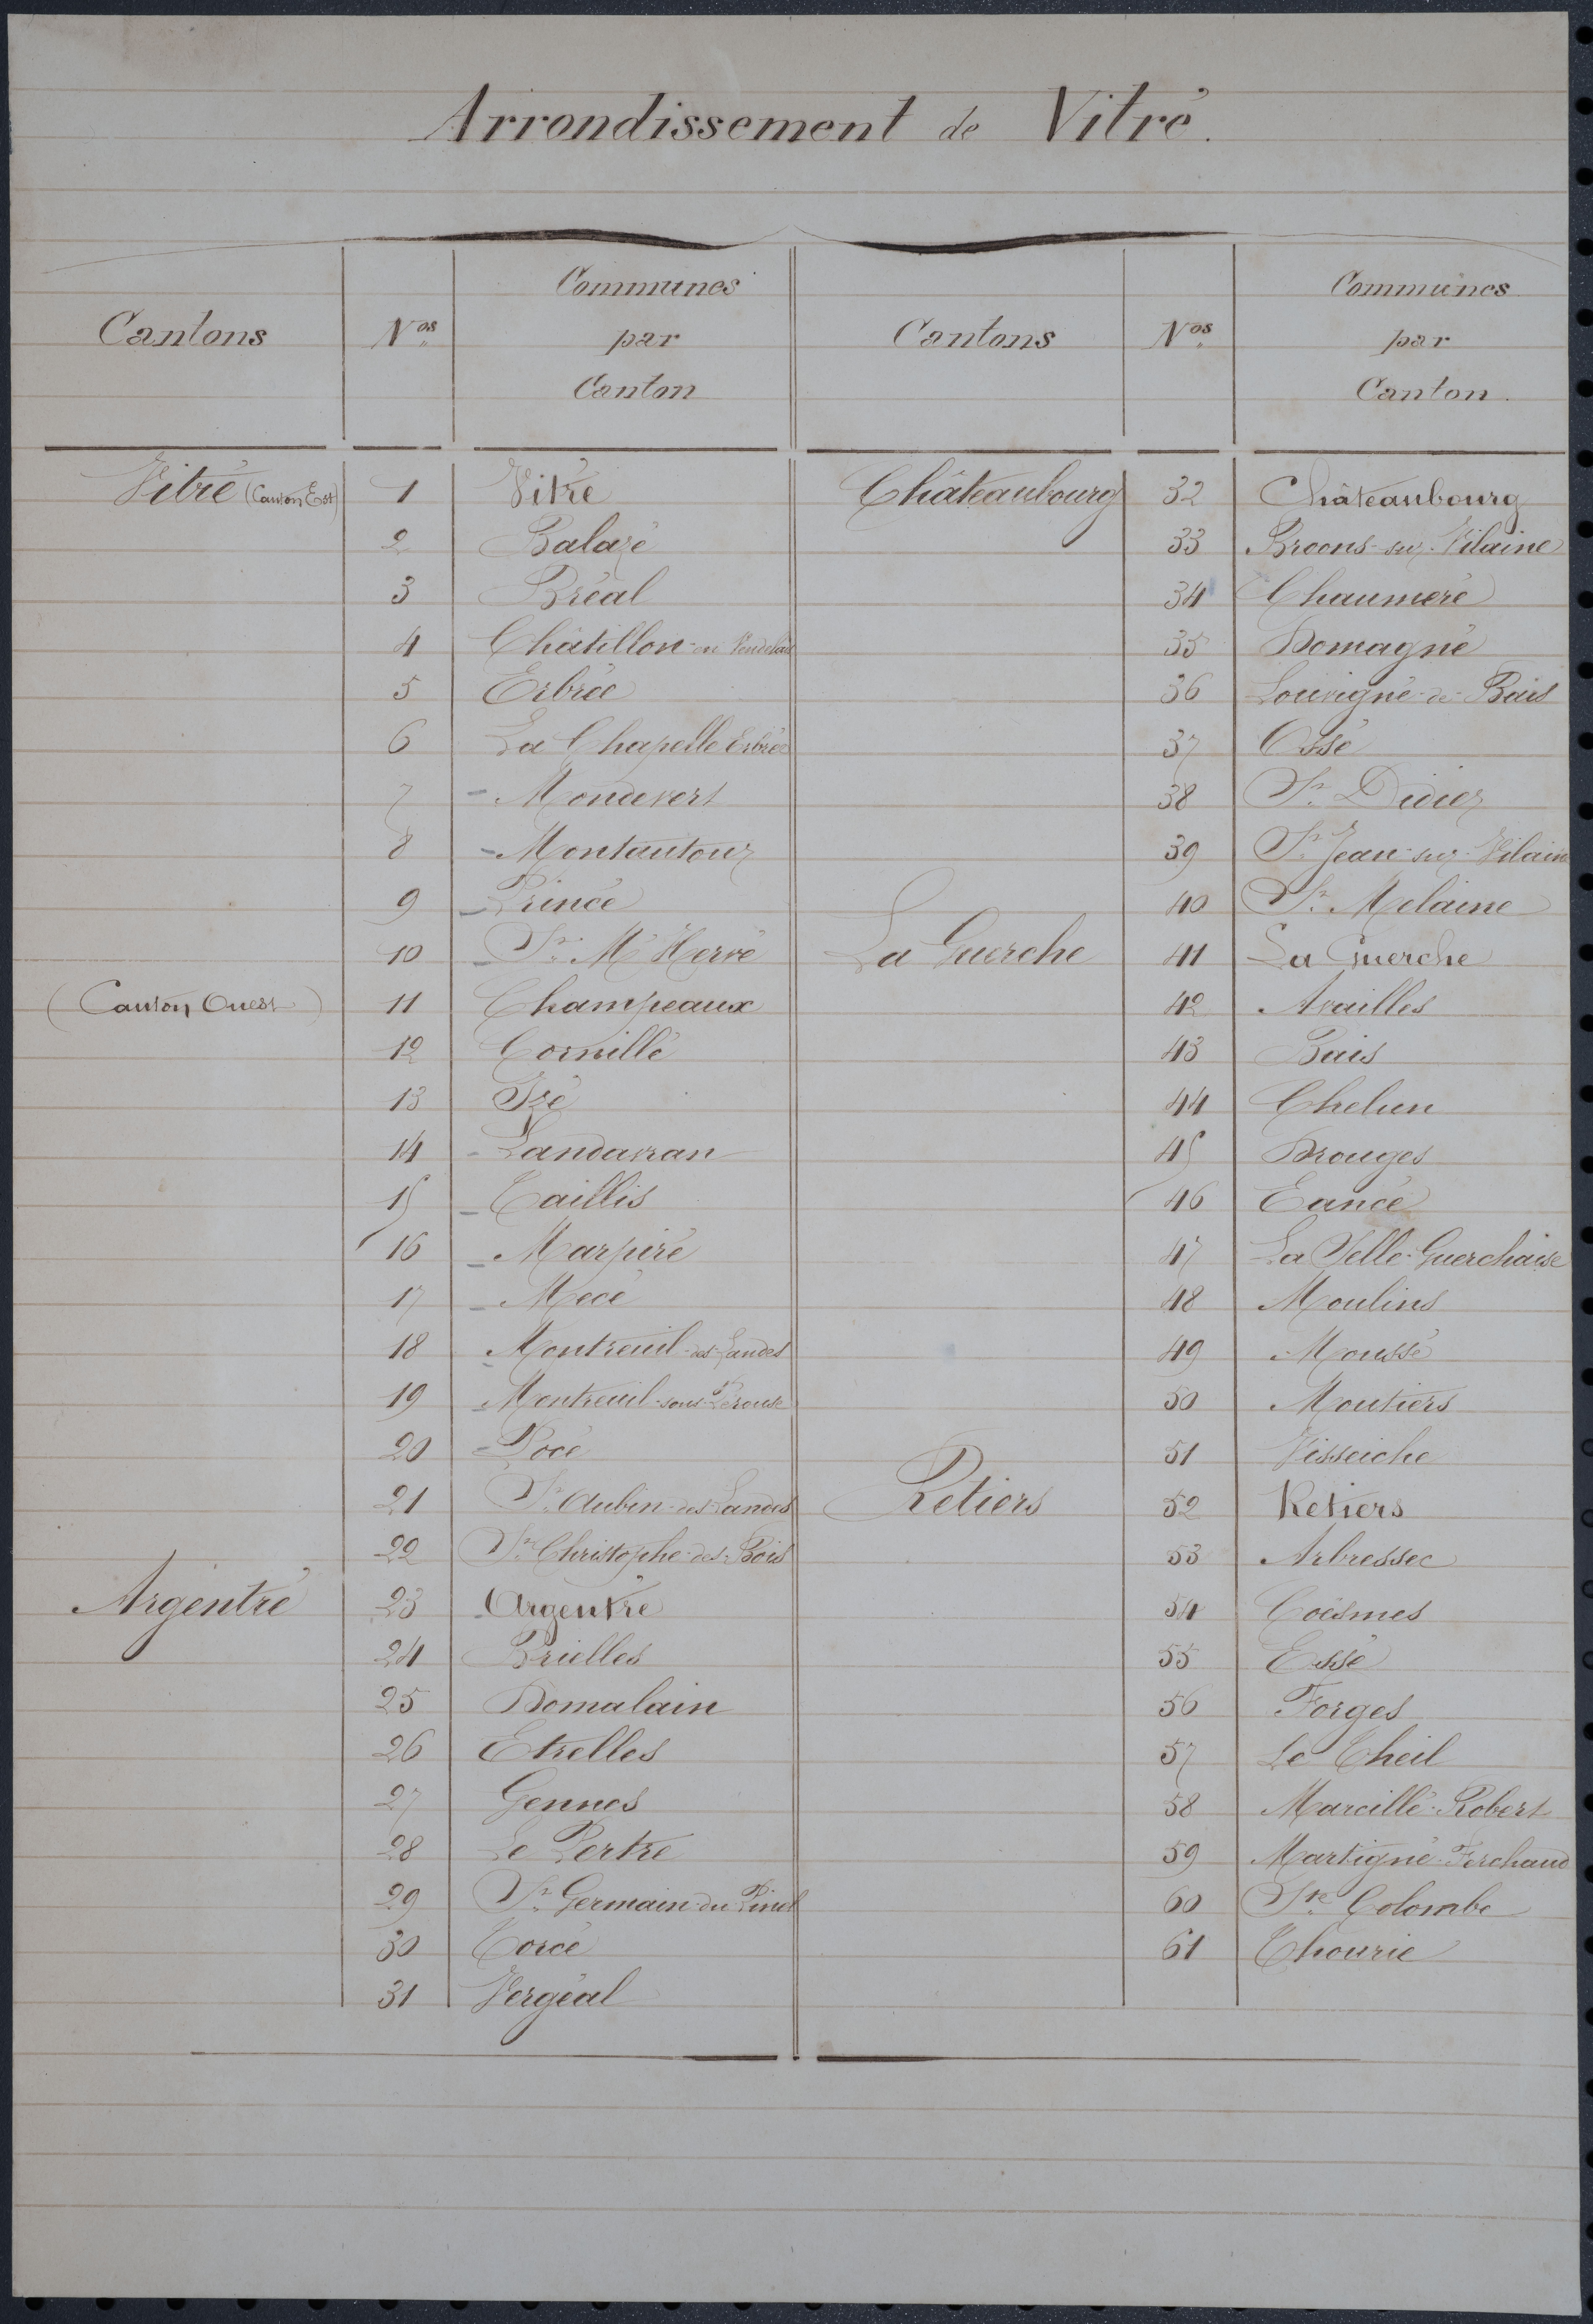 Arrondissement de Vitré.
Cantons
Nos
Communes
par
Canton
Vitré (Canton Est) 1 Vitré
2 Balazé
3 Bréal
4 Châtillon-en Vendelais
5 Erbrée
6 La Chapelle Erbrée
7 - Mondevert
8 - Montautour
9 - Princé
10 - St. M'Hervé
(Canton Ouest) 11 Champeaux
12 Cornillé
13 Izé
14 - Landavran
15 - Taillis
16 - Marpiré
17 - Mecé
18 - Montreuil-des-Landes
19 - Montreuil-sous-Pérouse
20 - Pocé
21 St. Aubin-des-Landes
22 St. Christophe-des-Bois
Argentré 23 Argentré
24 Brielles
25 Domalain
26 Etrelles
27 Gennes
28 Le Pertre
29 St. Germain-du-Pinel
30 Torcé
31 Vergéal
Cantons
Nos
Communes
par
Canton.
Châteaubourg 32 Châteaubourg
33 Broons-sur-Vilaine
34 Chaumeré
35 Domagné
36 Louvigné-de-Bais
37 Ossé
38 St. Didier
39 St. Jean-sur-Vilaine
40 St. Melaine
La Guerche 41 La Guerche
42 Availles
43 Bais
44 Chelun
45 Drouges
46 Eancé
47 La Selle-Guerchaise
48 Moulins
49 Moussé
50 Moutiers
51 Visseiche
Retiers 52 Retiers
53 Arbressec
54 Coësmes
55 Essé
56 Forges
57 Le Theil
58 Marcillé-Robert
59 Martigné-Ferchaud
60 Ste. Colombe
61 Thourie